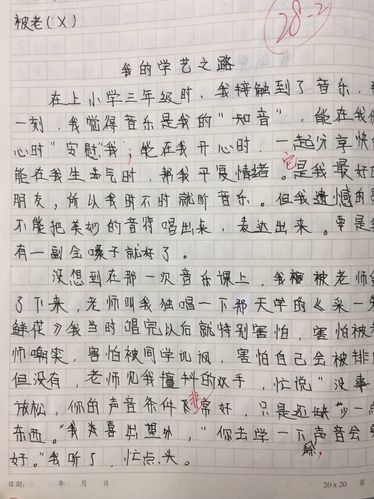 28-2
被老(X)
我的学艺之路
在上小学三年级时，我接触到了音乐，
一刻，我觉得音乐是我的"知音"，能在我
心时"安慰"我；能在我开心时，一起分享快
能在我生气时，帮我平复情绪。它是我最好
朋友，所以我时不时就听音乐。但我遗憾的
不能把美妙的音符唱出来，表达出来。要是
有一副金嗓子就好了。
没想到在那一次音乐课上，我被老师
了下来，老师叫我独唱一下那天学的《采一
鲜花》我当时唱完以后就特别害怕，害怕被
师嘲笑，害怕被同学讥讽，害怕自己会被排
但没有，老师见我擅抖的双手，忙说"没事
放松，你的声音条件非常好，只是还缺少一
东西。"我大喜出望外，"你去学一下声音会
好。"我听了，忙点头。
日期： 年 月 日 20x20 第